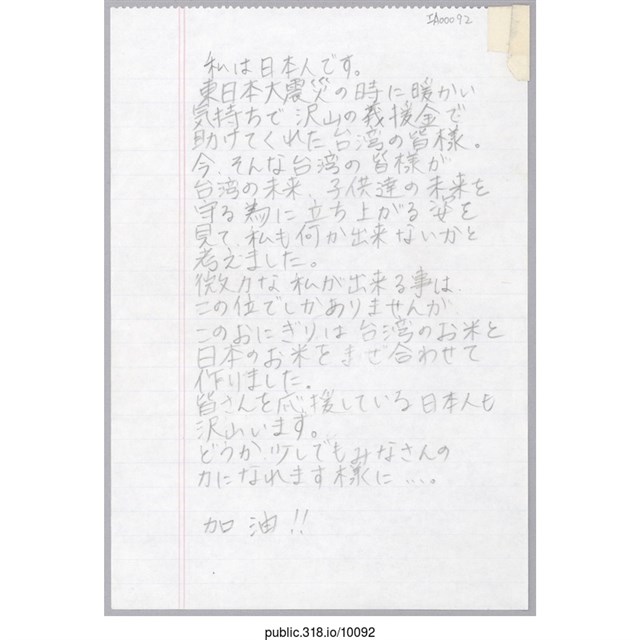 IA00092
私は日本人です。
東日本大震災の時に暖かい
気持ちで沢山の義援金で
助けてくれた台湾の皆様。
今、そんな台湾の皆様が
台湾の未来、子供達の未来を
守る為に立ち上がる姿を
見て、私も何か出来ないかと
考えました。
微々な私が出来る事は
この位でしかありませんが
このおにぎりは台湾のお米と
日本のお米をまぜ合わせて
作りました。
皆さんを応援している日本人も
沢山います。
どうか少しでもみなさんの
力になれます様に…。
加油!!
public.318.io/10092